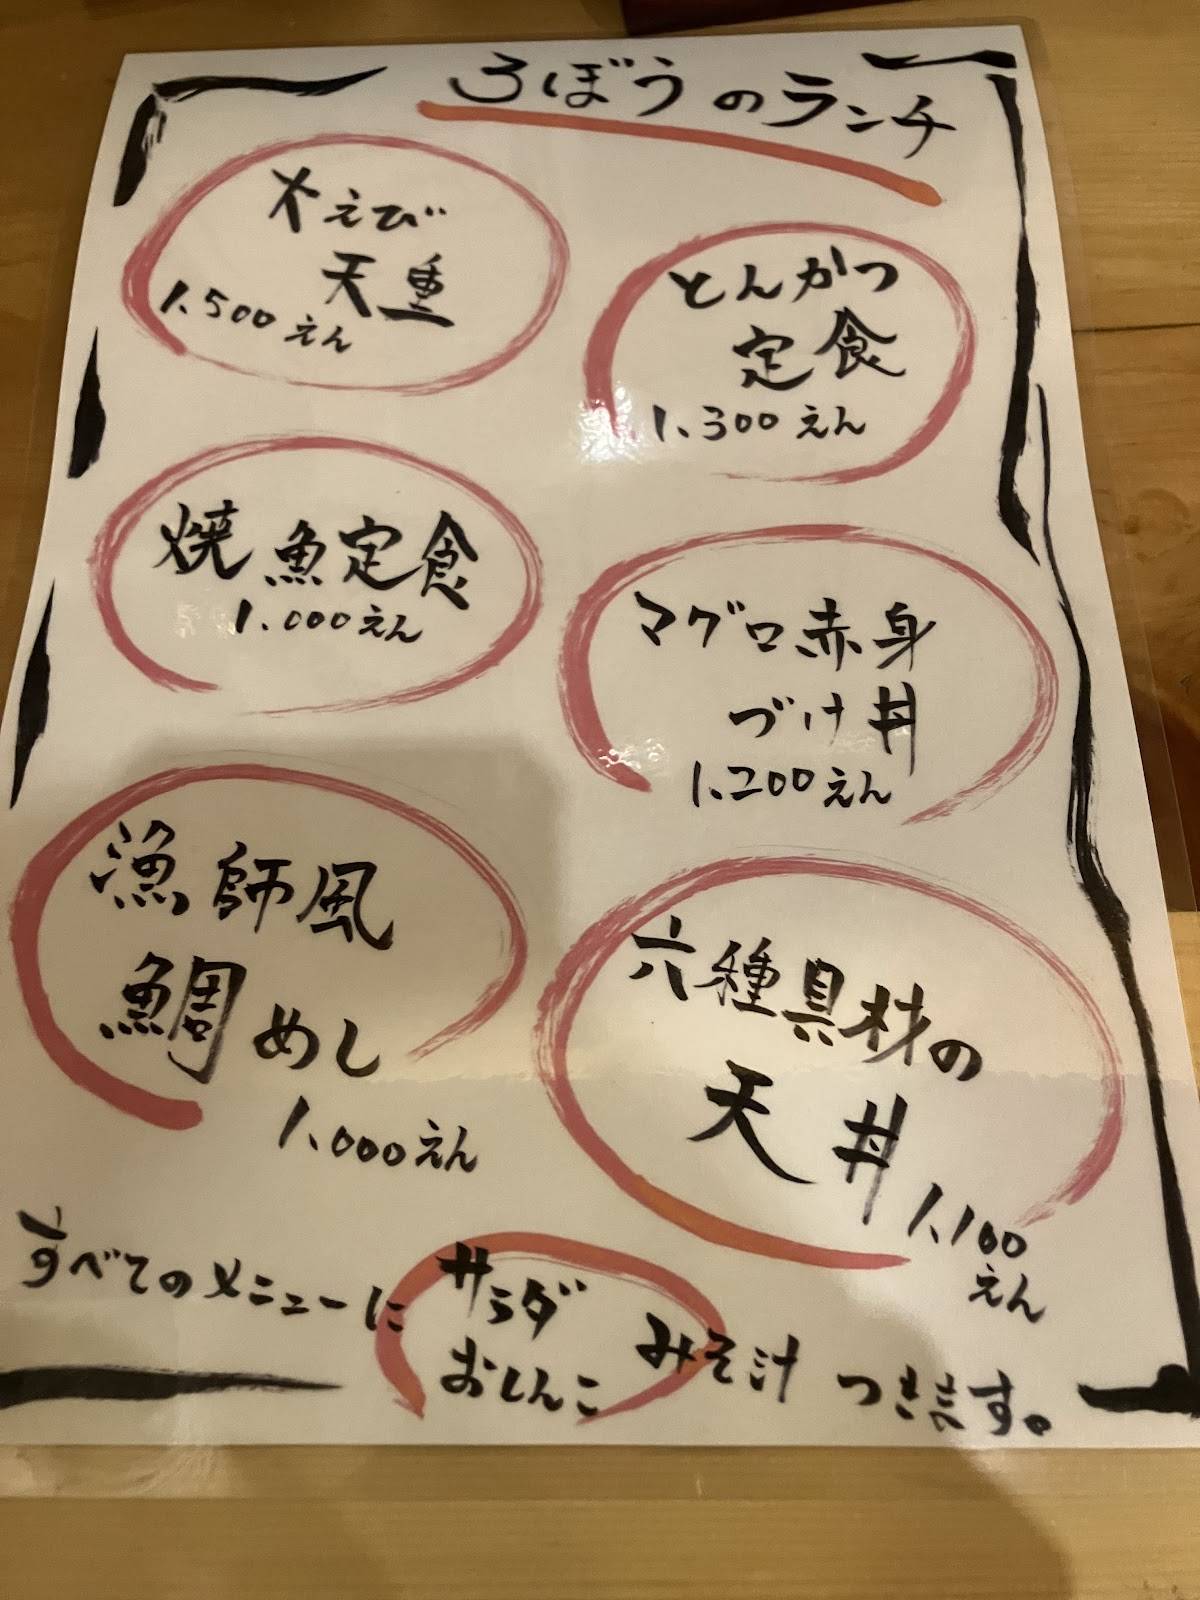 ろぼうのランチ
大えび
天重
1,500えん
とんかつ
定食
1,300えん
焼魚定食
1,000えん
マグロ赤身
づけ丼
1,200えん
漁師風
鯛めし
1,000えん
六種具材の
天丼
1,100
えん
すべてのメニューに サラダ みそ汁 つきます。
おしんこ